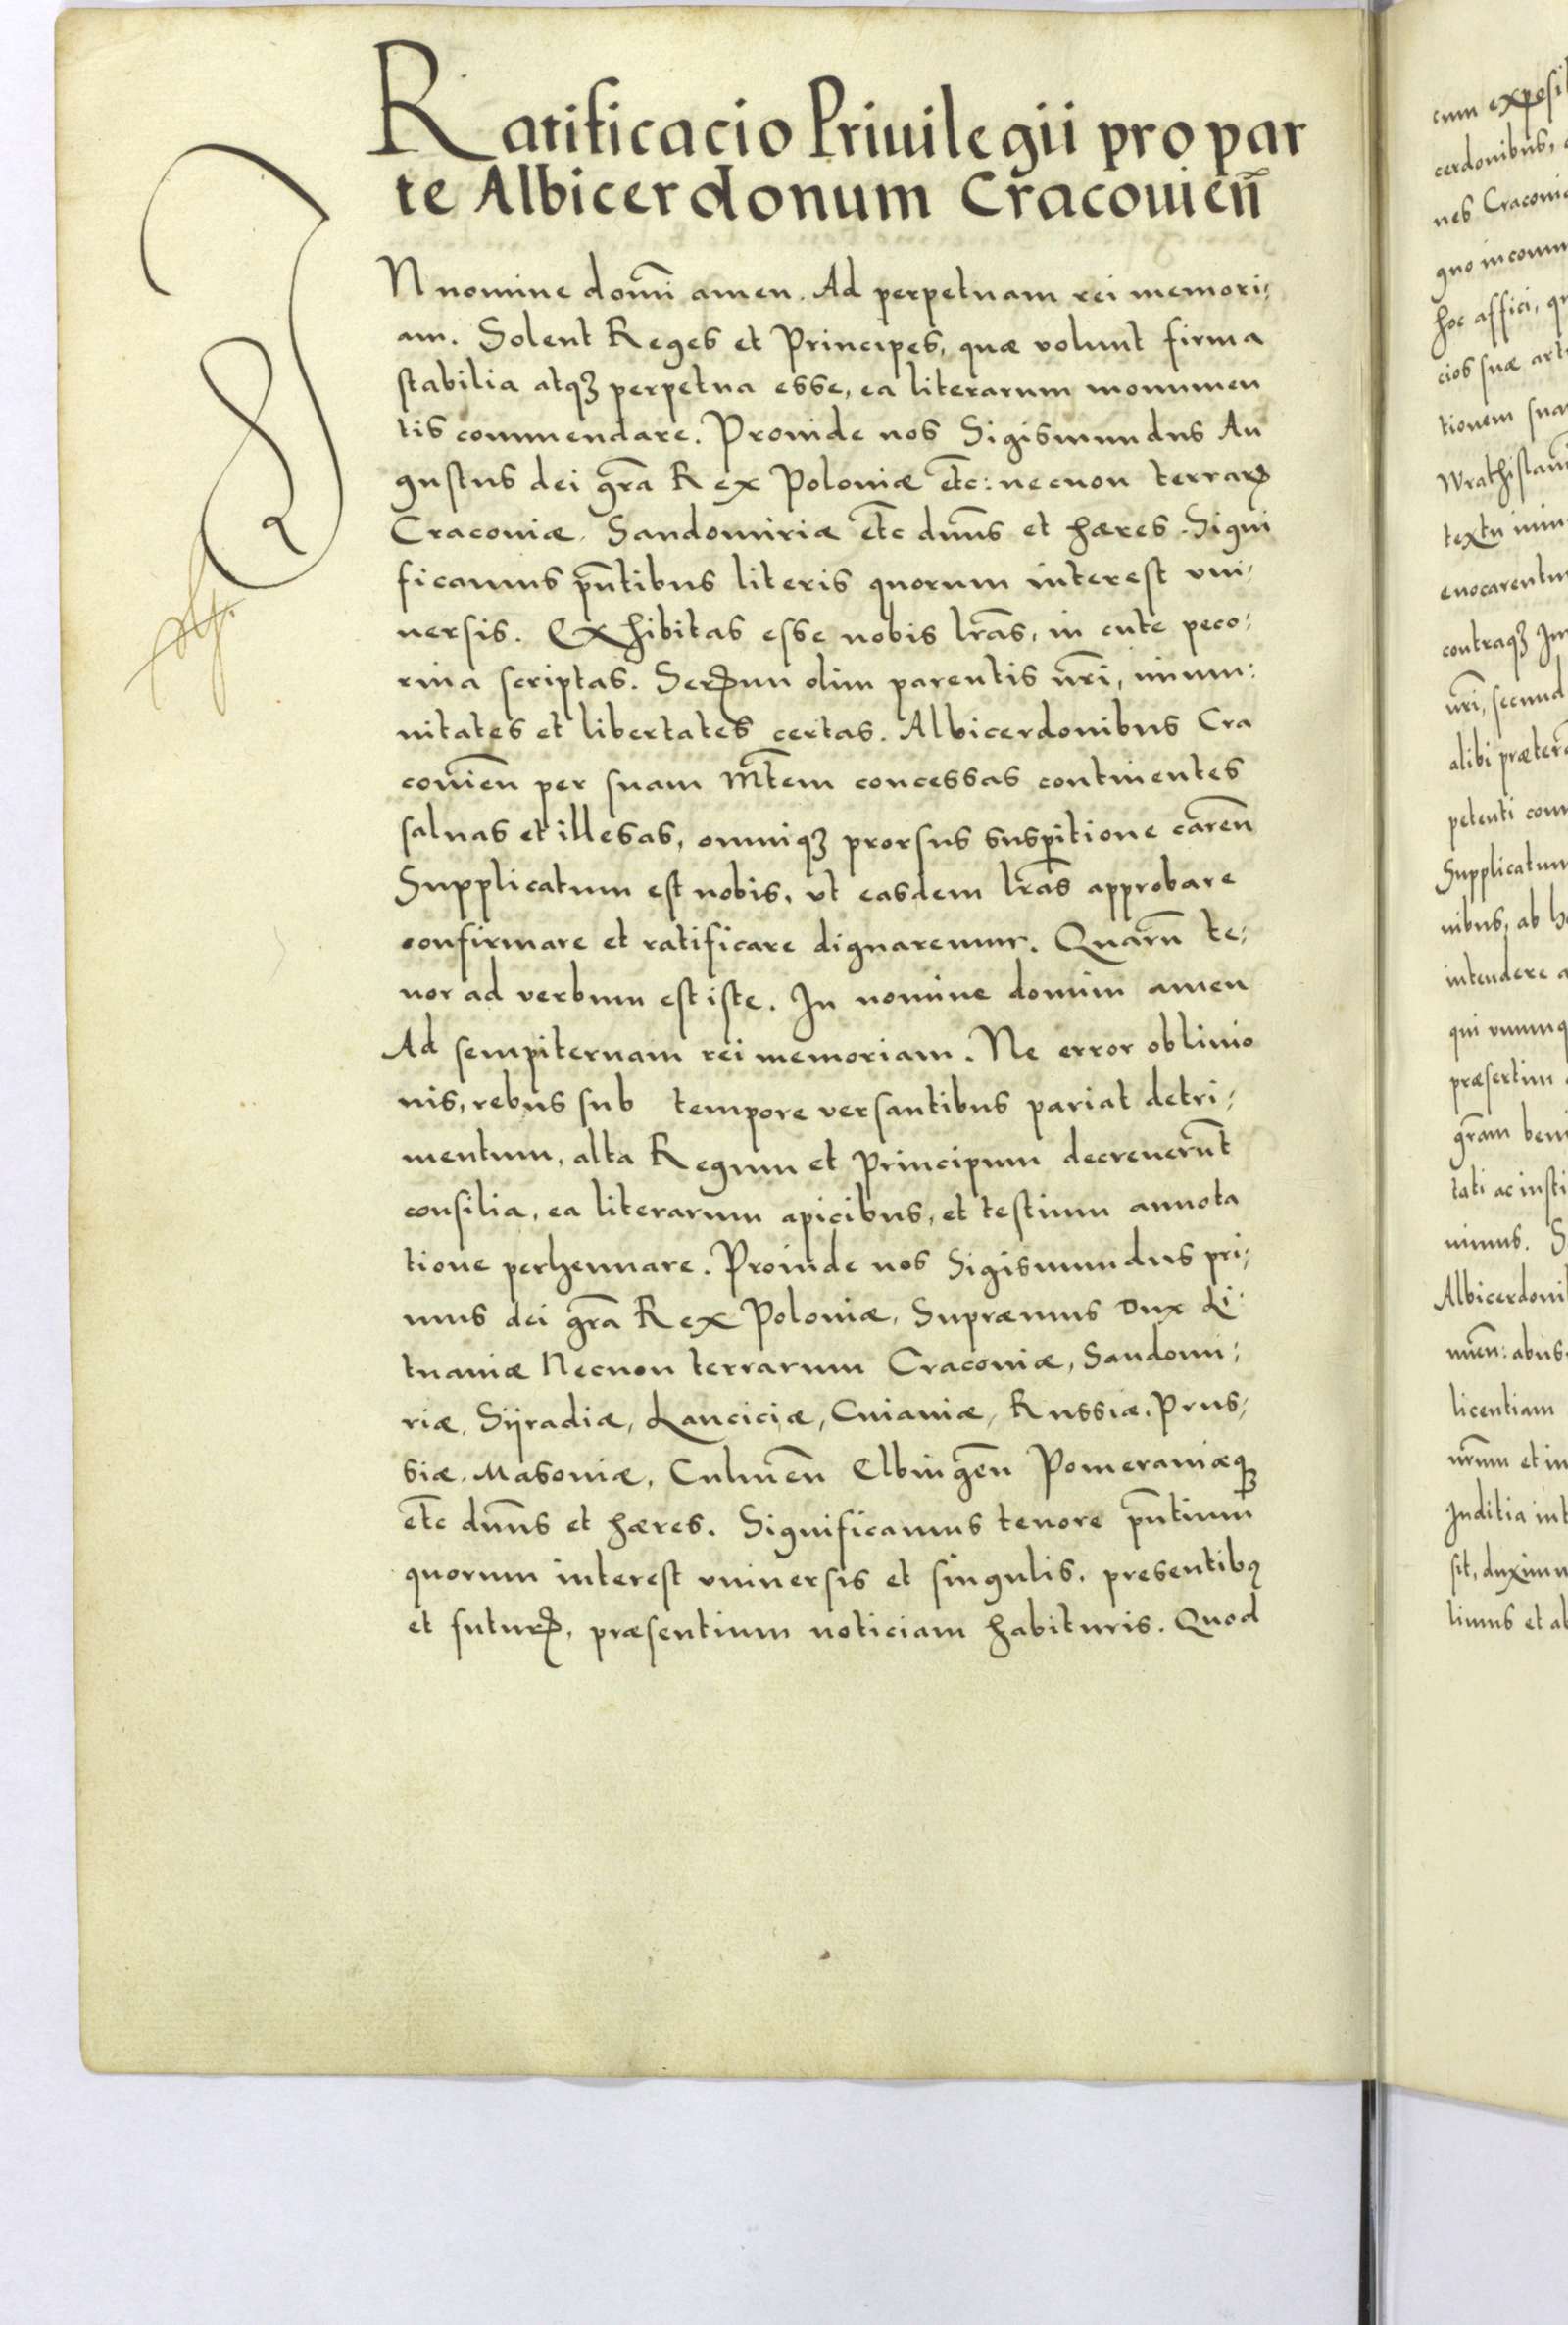 Ratificacio Priuilegii pro par
te Albicerdonum Cracouień
IN nomine domī amen. Ad perpetuam rei memori:
am. Solent Reges et Principes, quæ volunt firma
stabilia atqꝫ perpetua esse, ea literarum monumen
tis commendare. Proinde nos Sigismundus Au
gustus dei gr̃a Rex Poloniæ etc̃: necnon terrarꝝ
Cracouiæ, Sandomiriæ etc̃ dñus et hæres. Signi
ficamus pñtibus literis quorum interest vni:
uersis. Exhibitas esse nobis lr̃as, in cute peco:
rina scriptas. Serꝝmi olim parentis nr̃i, immu:
nitates et libertates certas. Albicerdonibus Cra
couień per suam Mt̃em concessas continentes
saluas et illesas, omniqꝫ prorsus suspitione careñ
Supplicatum est nobis, vt easdem lr̃as approbare
confirmare et ratificare dignaremur. Quarũ te:
nor ad verbum est iste. In nomine domini amen
Ad sempiternam rei memoriam. Ne error obliuio
nis, rebus sub tempore versantibus pariat detri:
mentum, alta Regum et Principum decreuerũt
consilia, ea literarum apicibus, et testium annota
tione perhennare. Proinde nos Sigismundus pri:
mus dei gr̃a Rex Poloniæ, Supræmus Dux Li:
tuaniæ Necnon terrarum Cracouiæ, Sandomi:
riæ, Sijradiæ, Lanciciæ, Cuiauiæ, Russiæ, Prus:
siæ, Masouiæ, Culmeñ Elbingeñ Pomeraniæqꝫ
etc̃ dñus et hæres. Significamus tenore pñtium
quorum interest vniuersis et singulis, presentibꝰ
et futurꝝ, præsentium noticiam habituris. Quod
cum exposi
cerdonibus,
nes Cracouie
quo incomm
hoc affici, qu
cios suæ arti
tionem sua
Wrathislaui
textu
euocarentu
contraqꝫ
nr̃i, secund
alibi præter
petenti com
Supplicatum
nibus, ab
intendere a
qui vnumq
præsertim
gr̃am beni
tati ac insti
nimus. S
Albicerdoni
abus
licentiam
et in
Inditia int
sit, duximu
limus et al